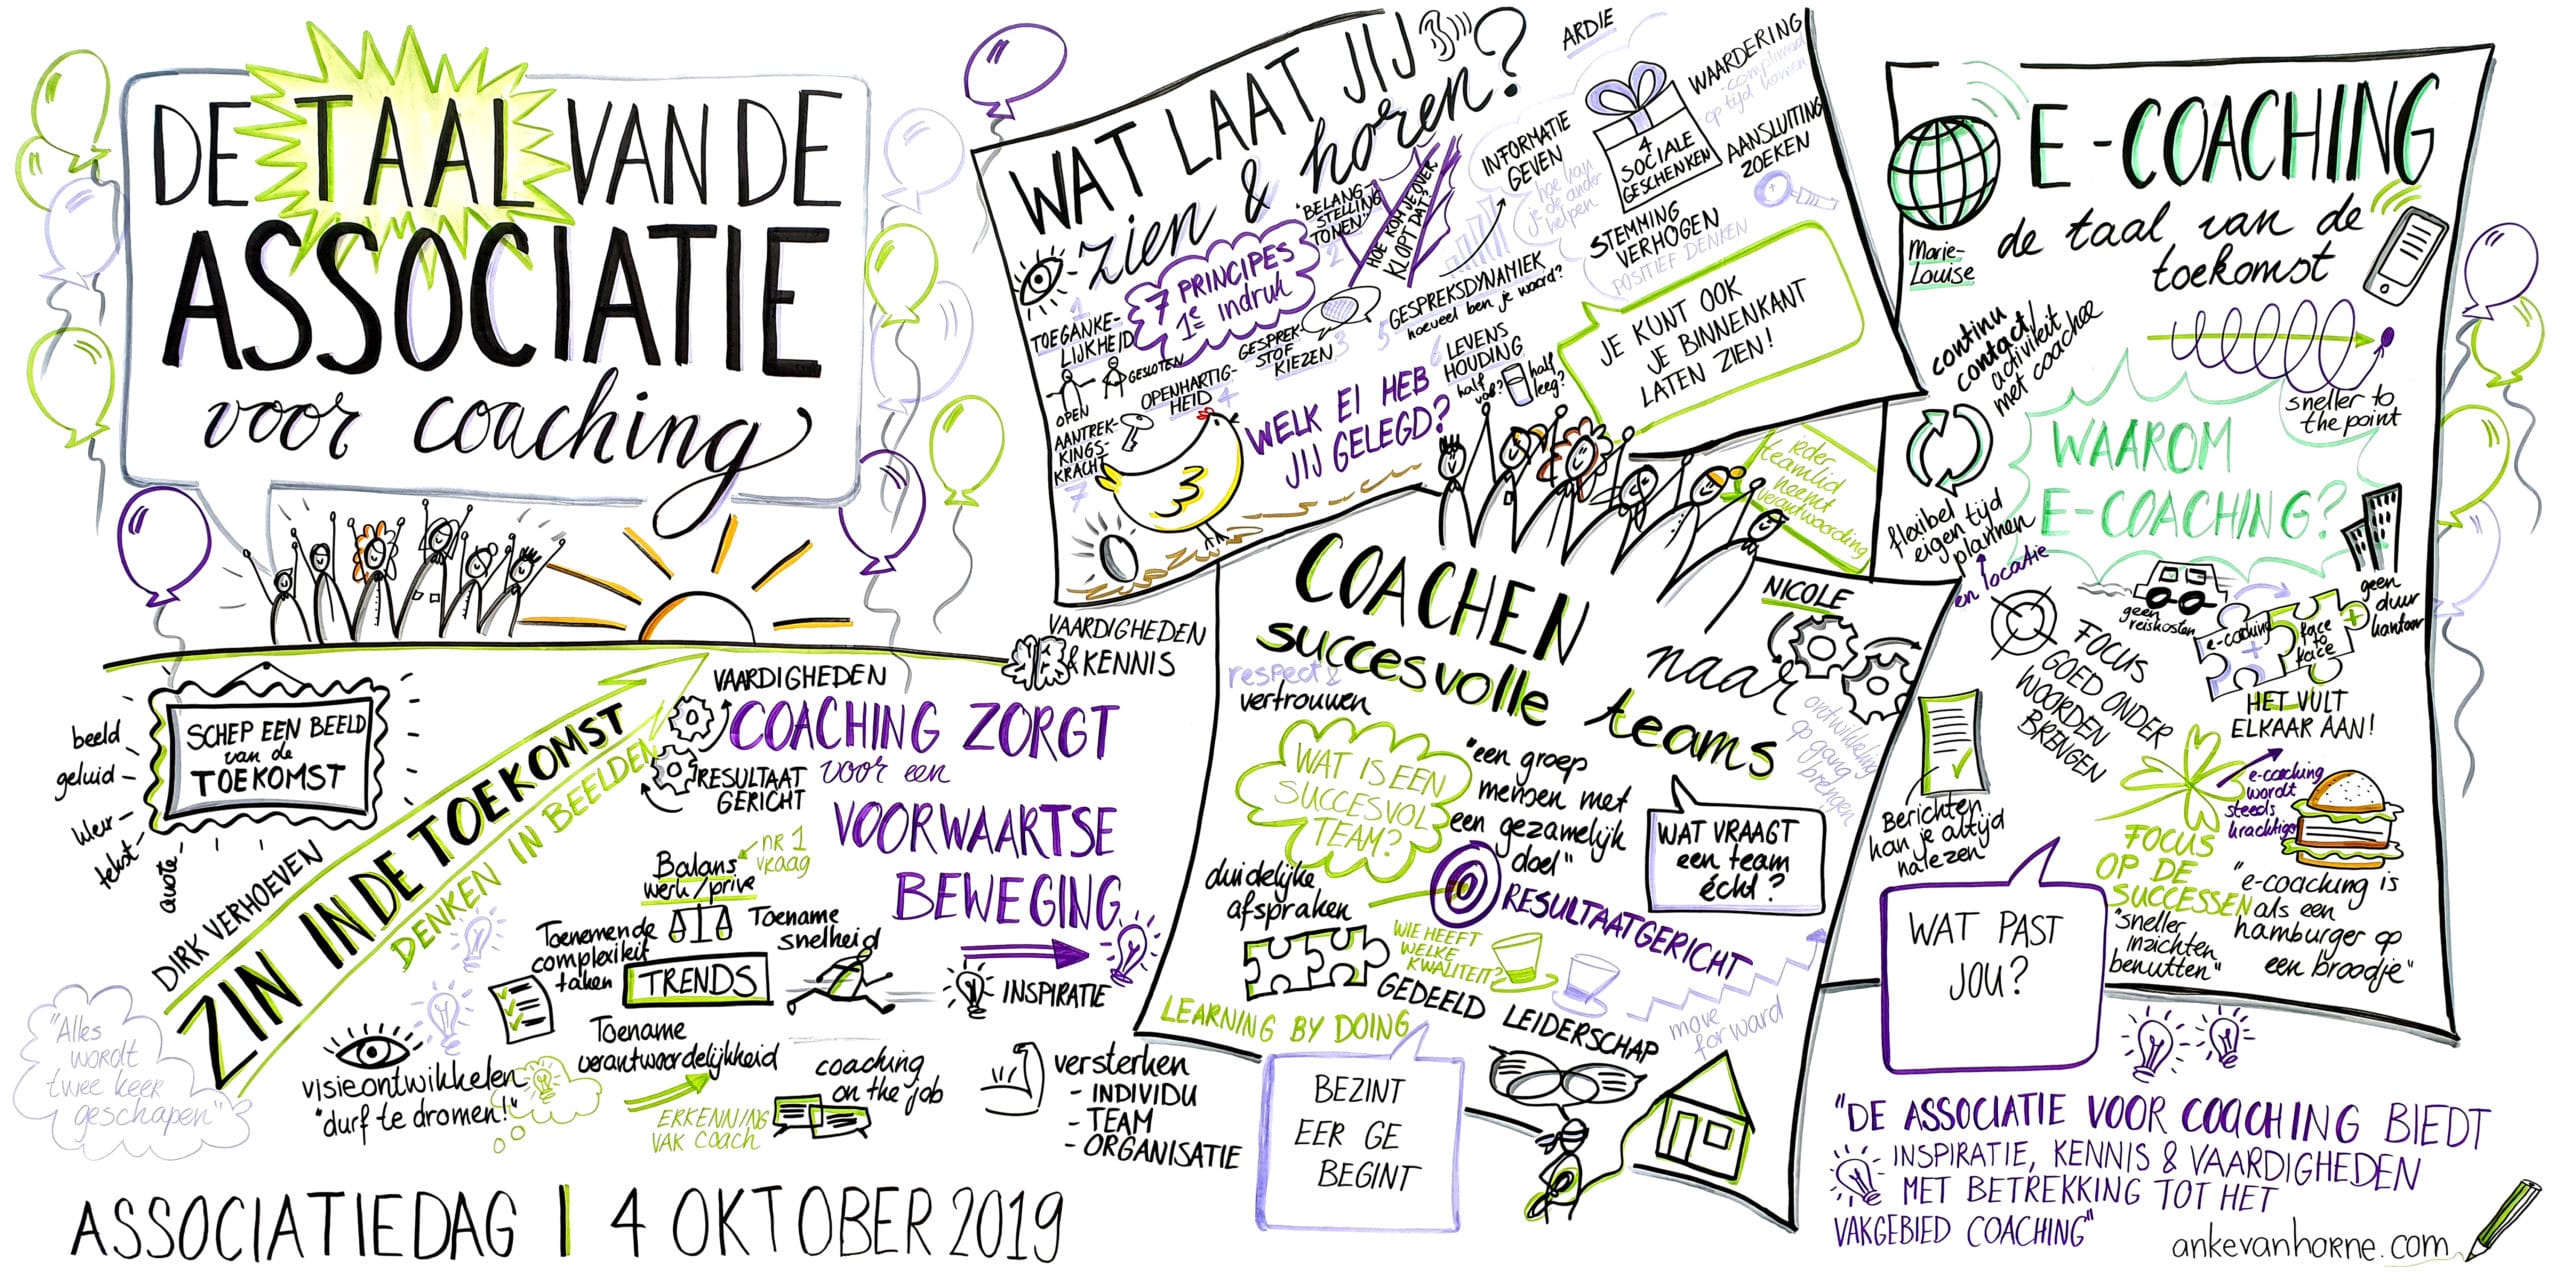 DE TAAL VAN DE
ASSOCIATIE
voor coaching
SCHEP EEN BEELD
van de
TOEKOMST
beeld
geluid
kleur
tekst
quote
DIRK VERHOEVEN
ZIN IN DE TOEKOMST
DENKEN IN BEELDEN
"Alles
wordt
twee keer
geschapen"
visieontwikkelen
"durf te dromen!"
VAARDIGHEDEN
RESULTAAT
GERICHT
VAARDIGHEDEN
& KENNIS
COACHING ZORGT
voor een
VOORWAARTSE
BEWEGING
INSPIRATIE
nr 1
vraag
Balans
werk/prive
Toenemende
complexiteit
taken
Toename
snelheid
TRENDS
Toename
verantwoordelijkheid
ERKENNING
VAK COACH
coaching
on the job
versterken
- INDIVIDU
- TEAM
- ORGANISATIE
ASSOCIATIEDAG | 4 OKTOBER 2019
WAT LAAT JIJ
zien & horen?
ARDIE
7 PRINCIPES
1e indruk
1
TOEGANKE-
LIJKHEID
GESLOTEN
OPEN
2
"BELANG-
STELLING
TONEN"
HOE KOM JE OVER
KLOPT DAT?
GESPREK-
STOF
KIEZEN 3
OPENHARTIG-
HEID 4
5 GESPREKSDYNAMIEK
hoeveel ben je woord?
6 LEVENS
HOUDING
half
vol?
half
leeg?
AANTREK-
KINGS-
KRACHT
7
WELK EI HEB
JIJ GELEGD?
INFORMATIE
GEVEN
hoe kan
je de ander
helpen
4
SOCIALE
GESCHENKEN
WAARDERING
compliment
op tijd komen
AANSLUITING
ZOEKEN
STEMMING
VERHOGEN
POSITIEF DENKEN
JE KUNT OOK
JE BINNENKANT
LATEN ZIEN!
ieder
teamlid
neemt
verantwoording
COACHEN
naar
succesvolle teams
NICOLE
respect &
vertrouwen
ontwikkeling
op gang
brengen
WAT IS EEN
SUCCESVOL
TEAM?
"een groep
mensen met
een gezamelijk
doel"
WAT VRAAGT
een team
écht?
duidelijke
afspraken
RESULTAATGERICHT
WIE HEEFT
WELKE
KWALITEIT?
GEDEELD LEIDERSCHAP
LEARNING BY DOING
move
forward
BEZINT
EER GE
BEGINT
E-COACHING
de taal van de
toekomst
Marie-
Louise
continu
contact/
activiteit
met coachee
sneller to
the point
WAAROM
E-COACHING?
flexibel
eigen tijd
plannen
en locatie
geen
reiskosten
geen
duur
kantoor
FOCUS
GOED ONDER
WOORDEN
BRENGEN
e-coaching
+
face
to
face
+
HET VULT
ELKAAR AAN!
Berichten
kan je altijd
nalezen
e-coaching
wordt
steeds
krachtiger
FOCUS
OP DE
SUCCESSEN
"sneller
inzichten
benutten"
"e-coaching is
als een
hamburger op
een broodje"
WAT PAST
JOU?
"DE ASSOCIATIE VOOR COACHING BIEDT
INSPIRATIE, KENNIS & VAARDIGHEDEN
MET BETREKKING TOT HET
VAKGEBIED COACHING"
ankevanhorne.com